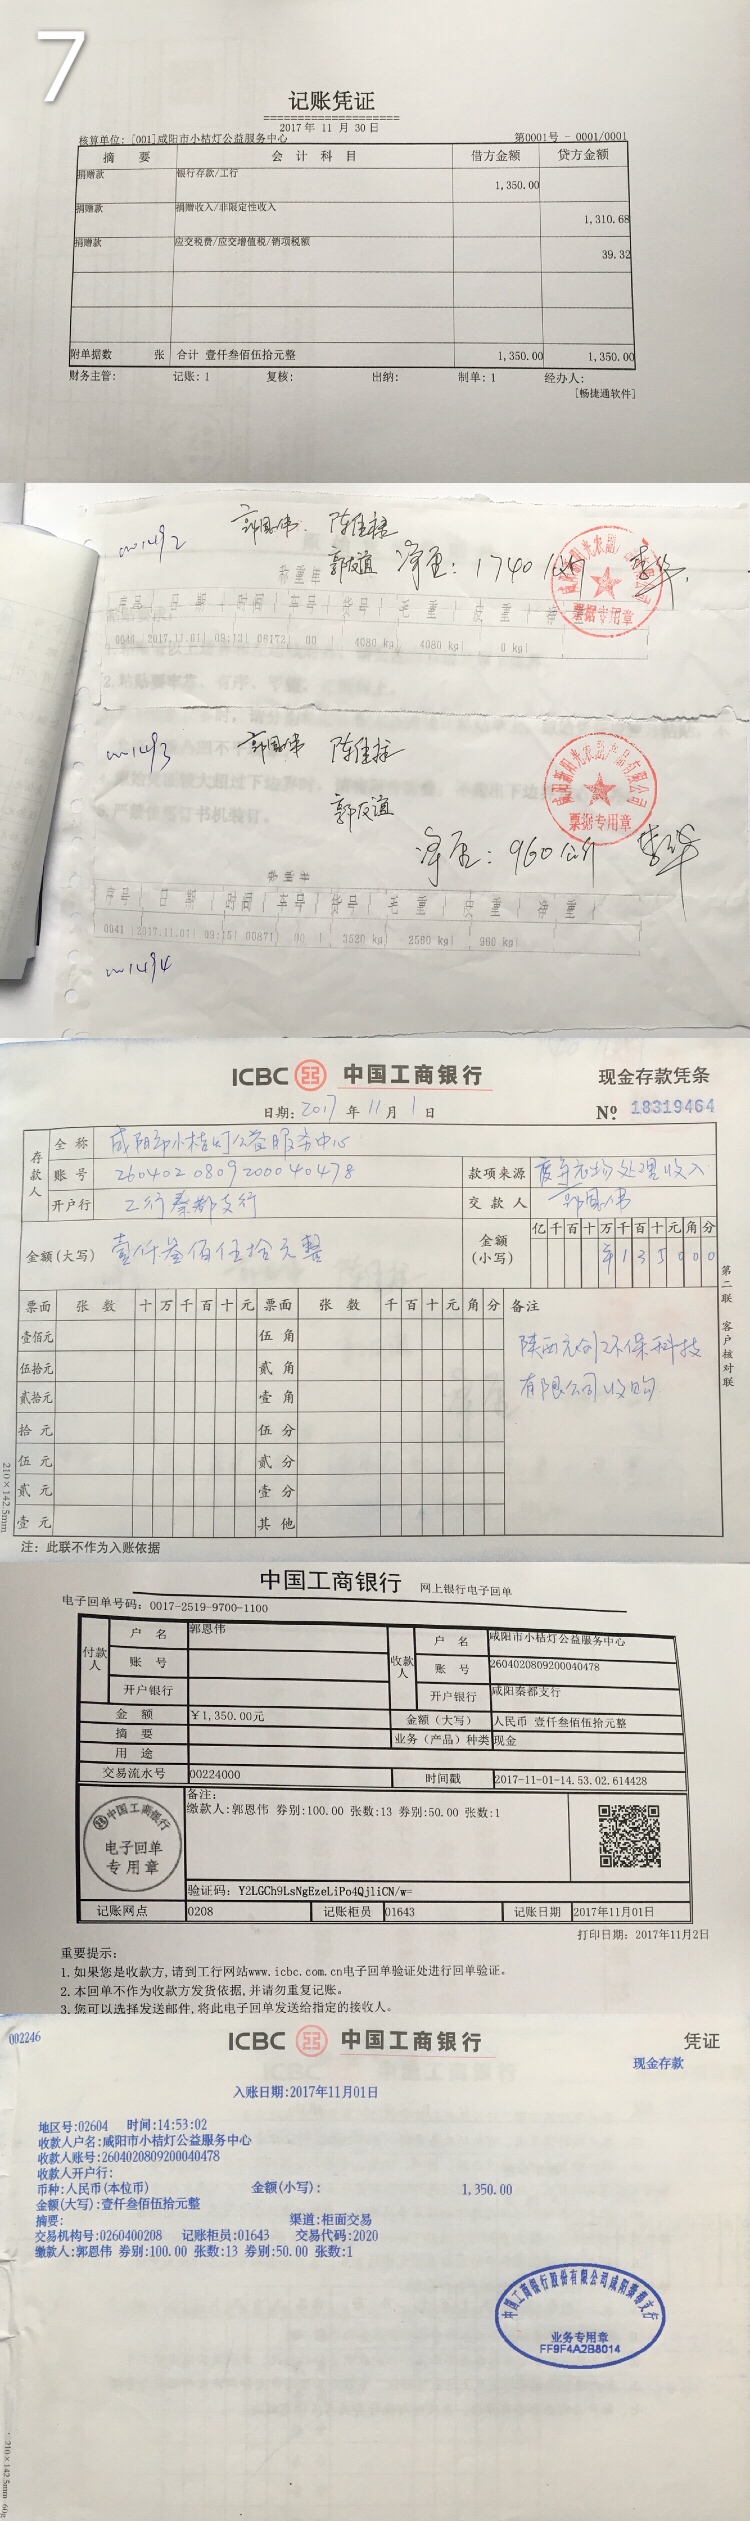 7
记账凭证
2017 年 11 月 30 日
核算单位: [001]咸阳市小桔灯公益服务中心 第0001号 - 0001/0001
摘 要 会 计 科 目 借方金额 贷方金额
捐赠款 银行存款/工行 1,350.00
捐赠款 捐赠收入/非限定性收入 1,310.68
捐赠款 应交税费/应交增值税/销项税额 39.32
附单据数 张 合计 壹仟叁佰伍拾元整 1,350.00 1,350.00
财务主管: 记账: 1 复核: 出纳: 制单: 1 经办人:
[畅捷通软件]
郭恩伟 陈佳梧
郭友谊 净重: 1740 李华
票据专用章
称重单
序号 日期 时间 车号 货号 毛重 皮重 净重
0040 2017.11.01 09:13 06172 00 4080 kg 4080 kg 0 kg
郭恩伟 陈佳梧
郭友谊
咸阳新阳光农副产品有限公司
票据专用章
净重: 960公斤 李华
称重单
序号 日期 时间 车号 货号 毛重 皮重 净重
0041 2017.11.01 09:15 00871 00 3520 kg 2560 kg 960 kg
ICBC 中国工商银行 现金存款凭条
日期: 2017 年 11 月 1 日 № 18319464
存款人 全称 咸阳市小桔灯公益服务中心
账号 2604020809200040478 款项来源 废弃衣物处理收入
开户行 工行秦都支行 交款人 郭恩伟
金额(大写) 壹仟叁佰伍拾元整 金额(小写) 亿千百十万千百十元角分 ¥135000
票面 张数 十万千百十元 票面 张数 千百十元角分 备注
壹佰元 伍角 陕西元创环保科技
伍拾元 贰角 有限公司收购
贰拾元 壹角
拾元 伍分
伍元 贰分
贰元 壹分
壹元 其他
第二联 客户核对联
210×142.5mm
注: 此联不作为入账依据
中国工商银行 网上银行电子回单
电子回单号码: 0017-2519-9700-1100
付款人 户名 郭恩伟 收款人 户名 咸阳市小桔灯公益服务中心
账号 账号 2604020809200040478
开户银行 开户银行 咸阳秦都支行
金额 ¥1,350.00元 金额(大写) 人民币 壹仟叁佰伍拾元整
摘要 业务(产品)种类 现金
用途
交易流水号 00224000 时间戳 2017-11-01-14.53.02.614428
中国工商银行
电子回单
专用章
备注:
缴款人:郭恩伟 券别:100.00 张数:13 券别:50.00 张数:1
验证码: Y2LGCh9LsNgEzeLiPo4QjliCN/w=
记账网点 0208 记账柜员 01643 记账日期 2017年11月01日
打印日期: 2017年11月2日
重要提示:
1. 如果您是收款方,请到工行网站www.icbc.com.cn电子回单验证处进行回单验证。
2. 本回单不作为收款方发货依据,并请勿重复记账。
3. 您可以选择发送邮件,将此电子回单发送给指定的接收人。
002246 ICBC 中国工商银行 凭证
现金存款
入账日期:2017年11月01日
地区号:02604 时间:14:53:02
收款人户名:咸阳市小桔灯公益服务中心
收款人账号:2604020809200040478
收款人开户行:
币种:人民币(本位币) 金额(小写): 1,350.00
金额(大写):壹仟叁佰伍拾元整
摘要: 渠道:柜面交易
交易机构号:0260400208 记账柜员:01643 交易代码:2020
缴款人:郭恩伟 券别:100.00 张数:13 券别:50.00 张数:1
中国工商银行股份有限公司咸阳秦都支行
业务专用章
FF9F4A2B8014
210×142.5mm 60g